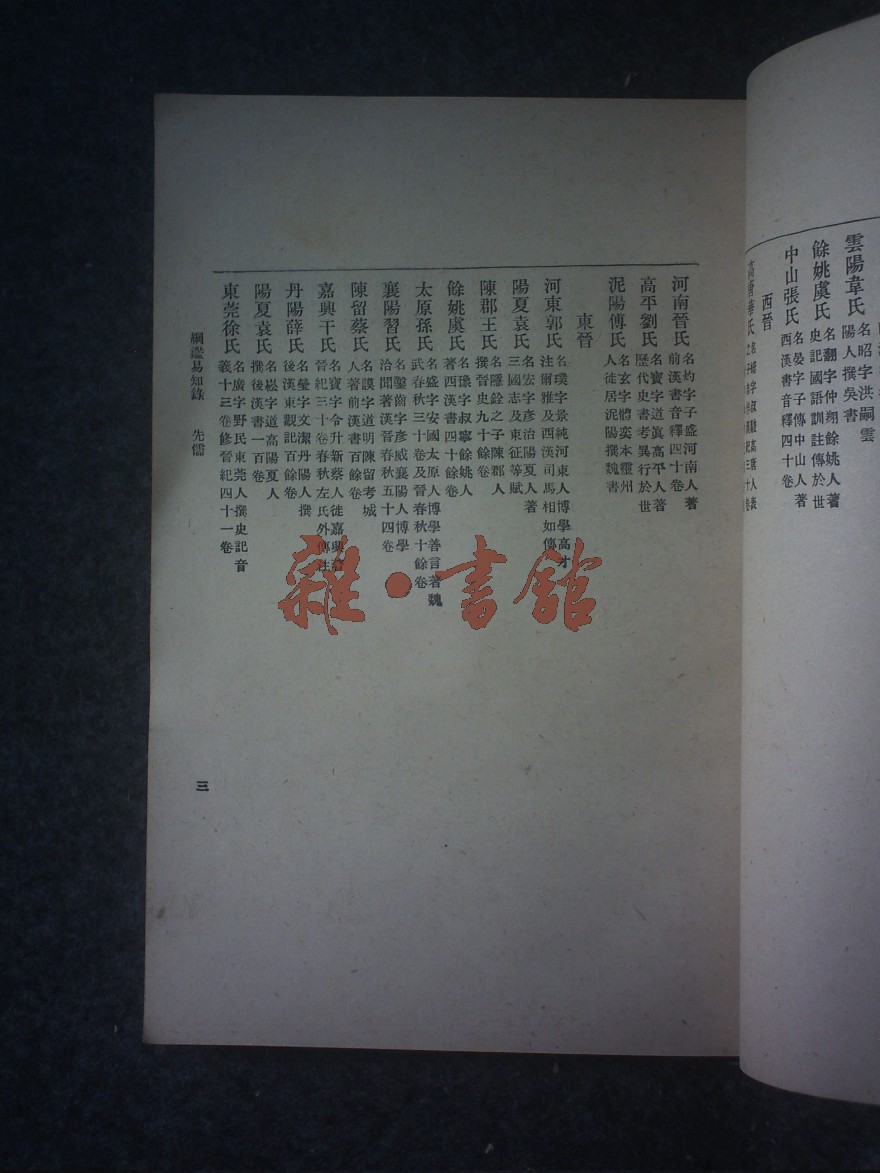 雲陽韋氏 名昭字洪嗣雲
陽人撰吳書
餘姚虞氏 名翻字仲翔餘姚人著
史記國語訓註傳於世
中山張氏 名晏字子傳中山人著
西漢書音釋四十卷
西晉
高唐華氏
河南晉氏 名灼字子盛河南人著
前漢書音釋四十卷
高平劉氏 名寶字道眞高平人著
歷代史書考異行於世
泥陽傅氏 名玄字體奕本靈州
人徙居泥陽撰魏書
東晉
河東郭氏 名璞字景純河東人博學高才
注爾雅及西漢司馬相如傳
陽夏袁氏 名宏字彥治陽夏人著
三國志及東征等賦
陳郡王氏 名隱銓之子陳郡人
撰晉史九十餘卷
餘姚虞氏 名豫字叔寧餘姚人
著西漢書四十餘卷
太原孫氏 名盛字安國太原人博學善言著魏
武春秋三十卷及晉春秋十餘卷
襄陽習氏 名鑿齒字彥威襄陽人博學
洽聞著漢晉春秋五十四卷
陳留蔡氏 名謨字道明陳留考城
人著前漢書百餘卷
嘉興干氏 名寶字令升新蔡人徙嘉興
晉紀三十卷春秋左氏外傳註
丹陽薛氏 名瑩字文潔丹陽人撰
後漢東觀記百餘卷
陽夏袁氏 名崧字道高陽夏人
撰後漢書一百卷
東莞徐氏 名廣字野民東莞人撰史記音
義十三卷修晉紀四十一卷
綱鑑易知錄 先儒
三
雜·書館